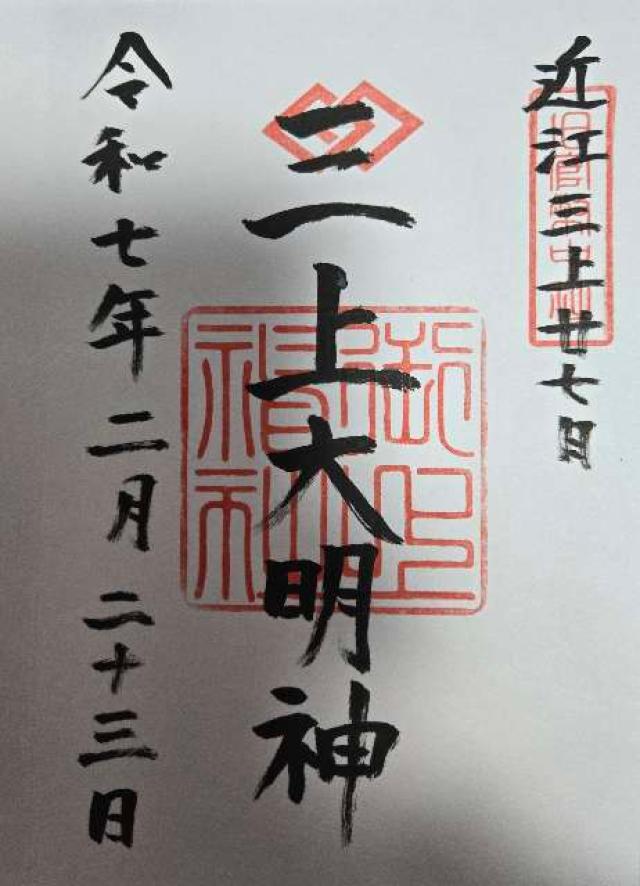 近江三上廿七日
三上大明神
令和七年二月二十三日
御上神社